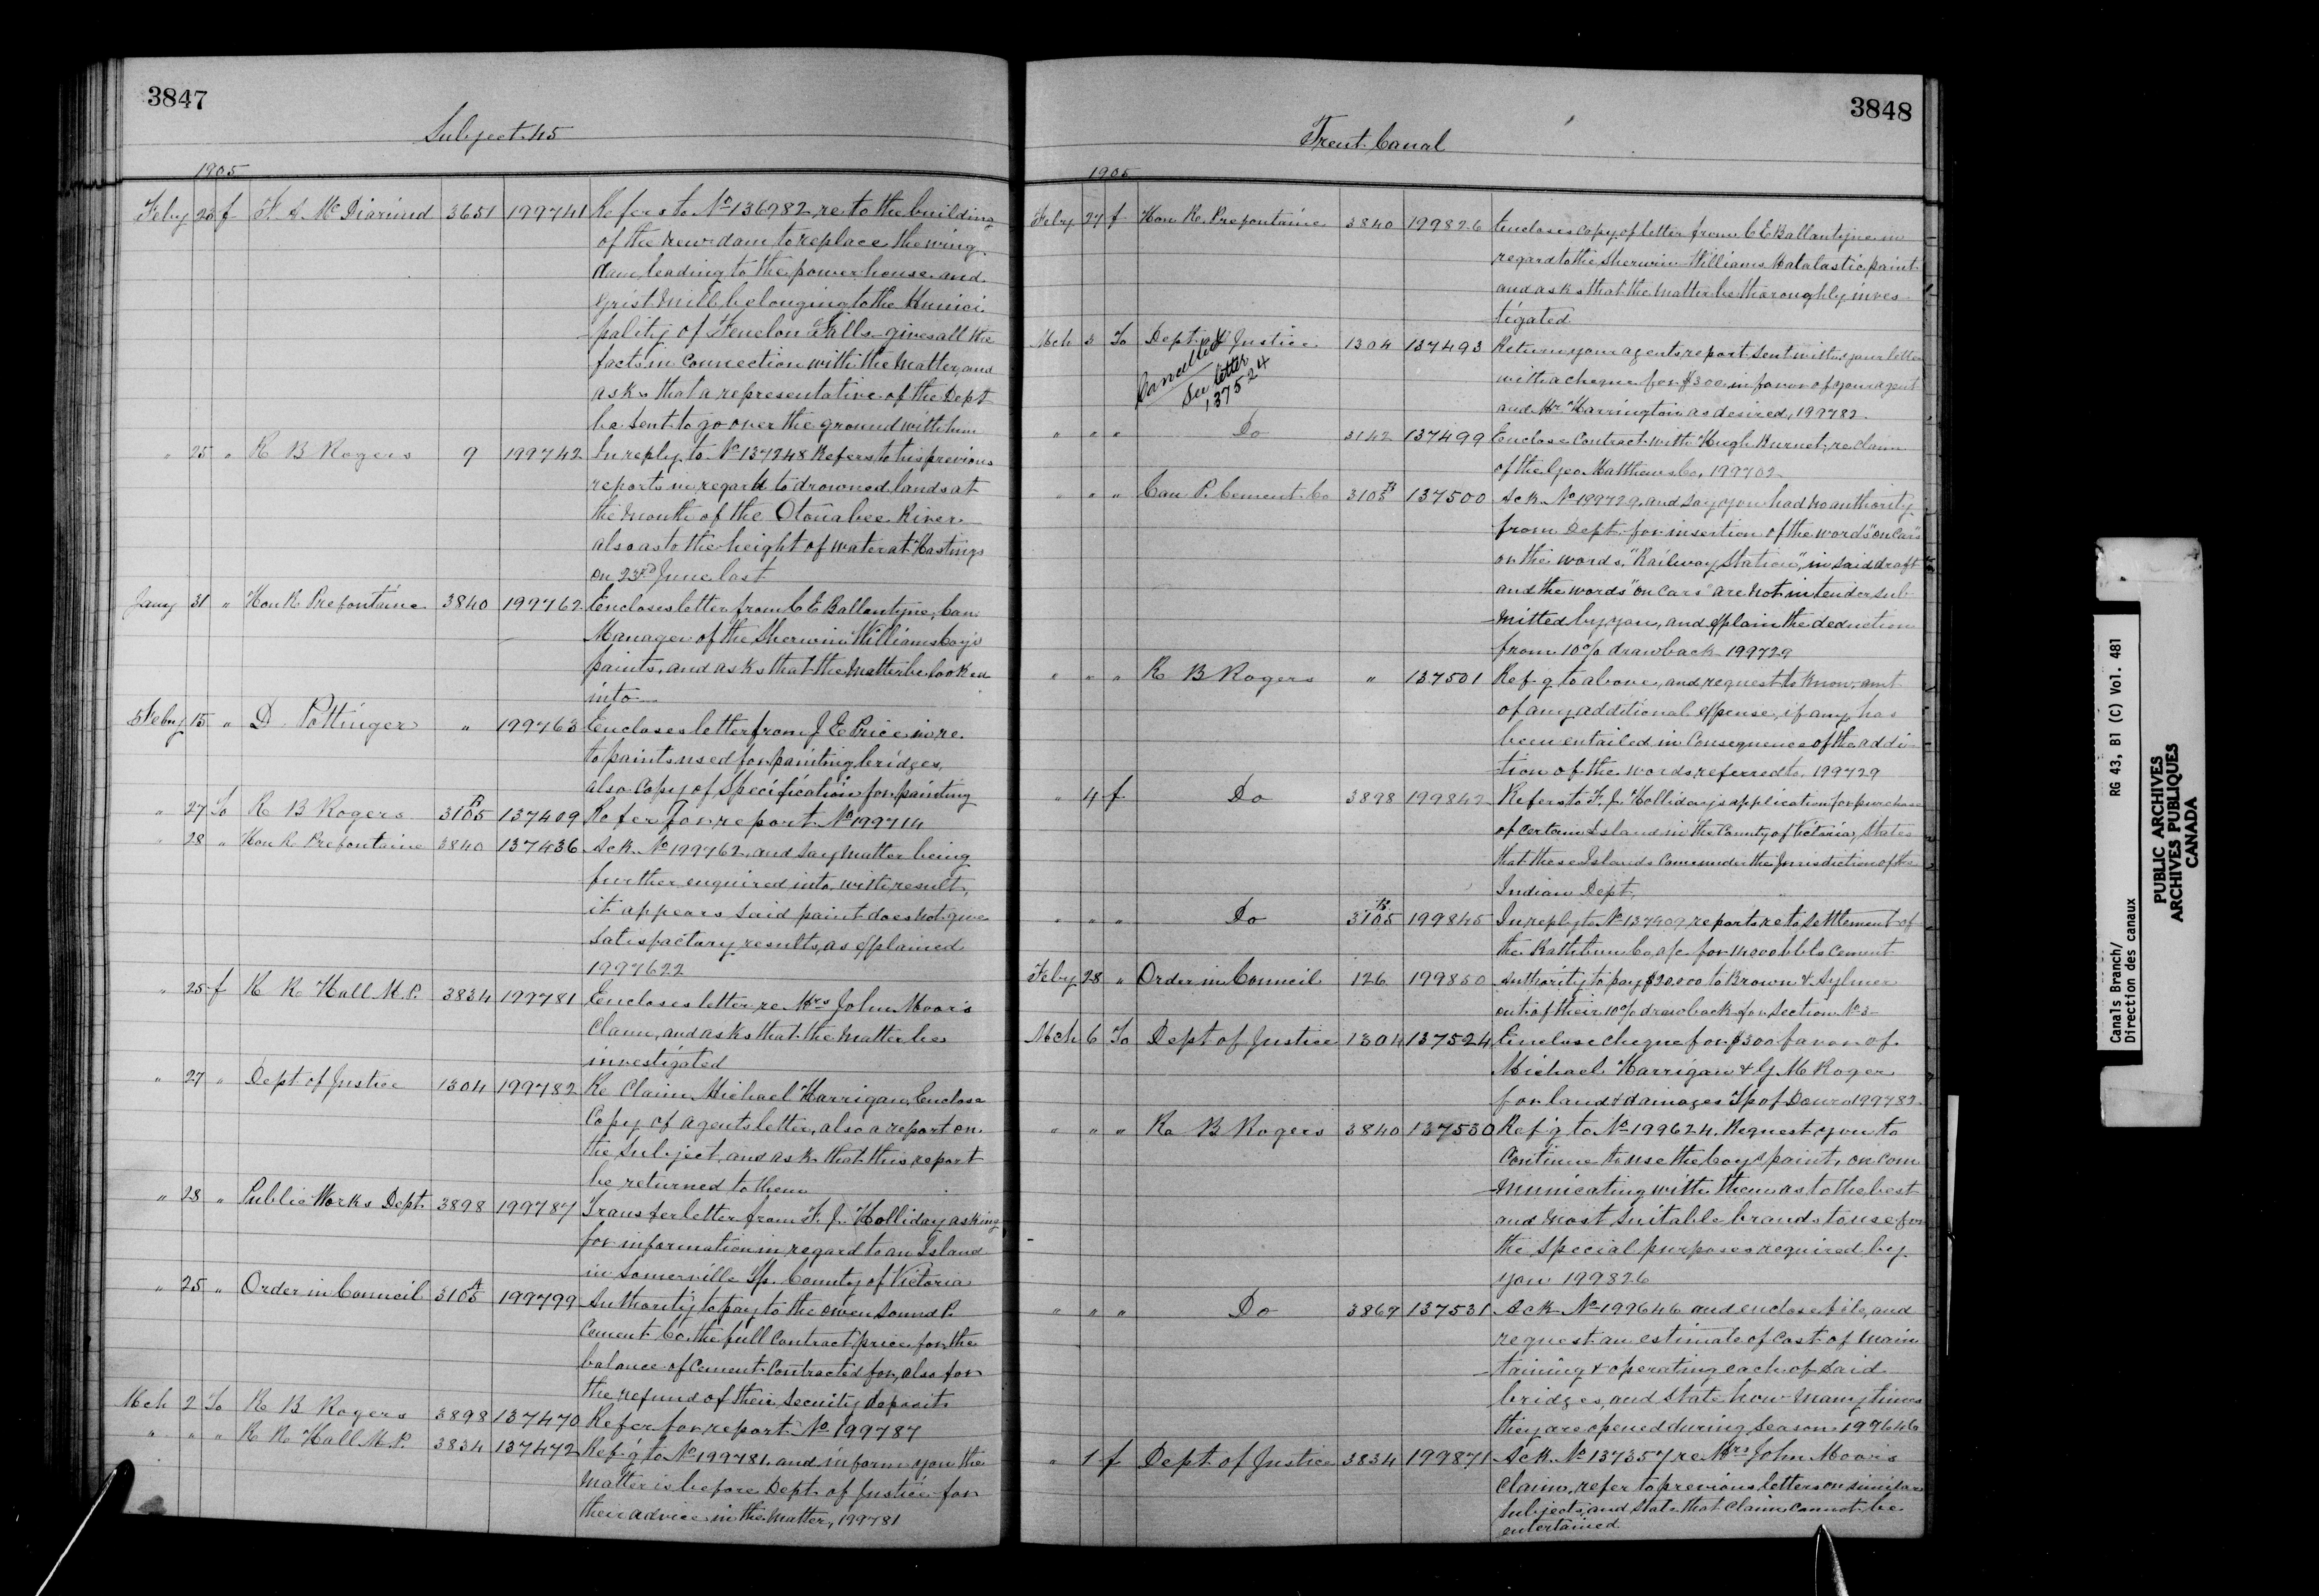 3847
Subject 45
1905
Feby 23 f F. A. McDiarmid 3651 199741 Refers to No 136982, re to the building
of the new dam to replace the wing
dam leading to the power house and
Grist Mill belonging to the Munici
pality of Fenelon Falls - gives all the
facts in connection with the matter, and
asks that a representative of the Dept
be sent to go over the ground with him
" 25 " R B Rogers 9 199742 In reply to No 137248 Refers to his previous
reports in regard to drowned lands at
the mouth of the Otonabee River
also as to the height of water at Hastings
on 23rd June last
Jany 31 " Hon R Prefontaine 3840 199762 Encloses letter from C E Ballantyne, Can
Manager of the Sherwin Williams Coy's
paints, and asks that the matter be looked
into
Feby 15 " D. Pottinger " 199763 Encloses letter from J E Price in re
to paints used for painting bridges,
also Copy of Specification for painting
" 27 To R B Rogers 3105 B 137409 Refer for report No 199714
" 28 " Hon R Prefontaine 3840 137436 Ack. No 199762, and say matter being
further enquired into, with result,
it appears said paint does not give
satisfactory results, as explained
1997622
" 25 f R R Hall M.P. 3834 199781 Encloses letter re Mrs John Moor's
Claim, and asks that the matter be
investigated
" 27 " Dept of Justice 1304 199782 Re Claim Michael Harrigan, Enclose
Copy of agents letter, also a report on
the Subject, and ask that this report
be returned to them
" 28 " Public Works Dept. 3898 199787 Transfer letter from F. J. Holliday asking
for information in regard to an Island
in Somerville Tp. County of Victoria
" 25 " Order in Council 3105 A 199799 Authority to pay to the Owen Sound P.
Cement Co. the full Contract price for the
balance of Cement Contracted for, also for
the refund of their Security deposit
Mch 2 To R B Rogers 3898 137470 Refer for report No 199787
" " " R R Hall M.P. 3834 137472 Ref'g to No 199781. and inform you the
matter is before Dept. of Justice for
their advice in the matter, 199781
3848
Trent Canal
1905
Feby 27 f Hon R. Prefontaine 3840 199826 Encloses Copy of letter from C E Ballantyne in
regard to the Sherwin Williams Matalastic paint
and asks that the matter be thoroughly inves
tigated
Mch 3 To Dept of Justice 1304 137493 Return your agents report sent with your letter
Cancelled
See letter
137524
with a cheque for $300 in favor of your agent
and Mr Harrington as desired, 199782
" " " Do 3142 137499 Enclose Contract with Hugh Burnet, re claim
of the Geo. Matthews Co. 199702
" " " Can P. Cement Co 3105 B 137500 Ack No 199729, and say you had no authority
from Dept for insertion of the words "on cars"
or the words, "Railway Station", in said draft
and the words "on Cars" are not in tender sub
mitted by you, and explain the deduction
from 10% drawback 199729
" " " R B Rogers " 137501 Ref'g to above, and request to know, amt
of any additional expense, if any, has
been entailed in Consequence of the addi
tion of the words referred to. 199729
" 4 f Do 3898 199842 Refers to F. J. Holliday's application for purchase
of certain Island in the County of Victoria, States
that these Islands come under the Jurisdiction of the
Indian Dept,
" " " Do 3105 B 199845 In reply to No 137409, reports re to settlement of
the Rathbun Co. a/c for 14000 bbls Cement
Feby 28 " Order in Council 126 199850 Authority to pay $20,000 to Brown & Aylmer
out of their 10% drawback for Section No 3
Mch 6 To Dept of Justice 1304 137524 Enclose cheque for $300 favor of
Michael Harrigan & G. M Roger
for land & damages Tp of Douro 199782
" " " R B Rogers 3840 137530 Ref'g to No 199624. Request you to
Continue to use the Coy's paint, on com
municating with them as to the best
and most suitable brands to use for
the special purposes required by
you 199826
" " " Do 3867 137531 Ack No 199646 and enclose file, and
request an estimate of cost of main
taining & operating each of said
bridges, and state how many times
they are opened during season 199646
" 1 f Dept of Justice 3834 199871 Ack No 137357 re Mrs John Moor's
Claim, refer to previous letters on similar
subjects, and state that Claim cannot be
entertained
Canals Branch/
Direction des canaux
RG 43, B1 (C) Vol. 481
PUBLIC ARCHIVES
ARCHIVES PUBLIQUES
CANADA